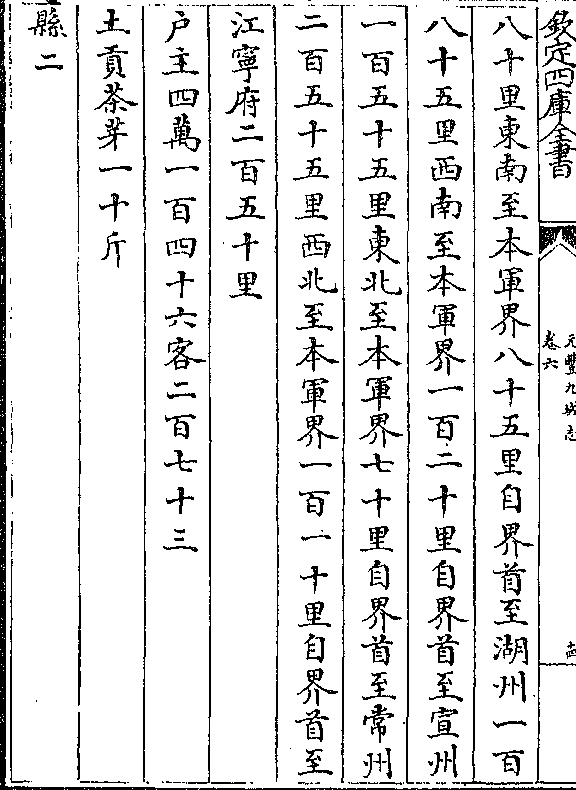 欽定四庫全書
元豐九域志
卷六
八十里東南至本軍界八十五里自界首至湖州一百
八十五里西南至本軍界一百二十里自界首至宣州
一百五十五里東北至本軍界七十里自界首至常州
二百五十五里西北至本軍界一百一十里自界首至
江寧府二百五十里
户主四萬一百四十六客二百七十三
土貢茶芽一十斤
縣二